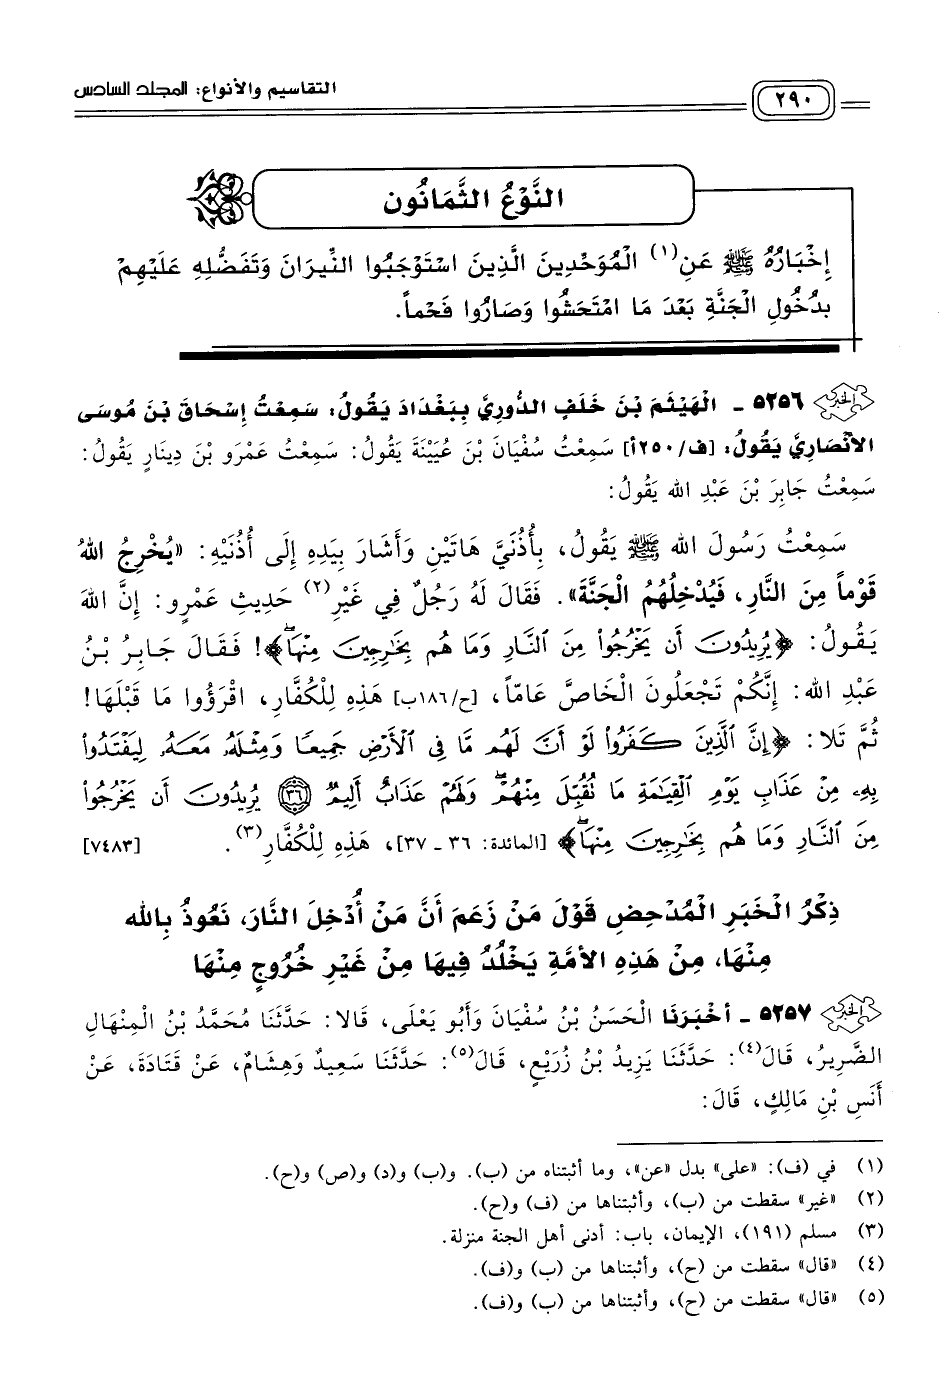 التقاسيم والأنواع: المجلد السادس
٢٩٠
النَّوْعُ الثَّمَانُون
إِخْبَارُهُ ﷺ عَنِ(١) الْمُوَحِّدِينَ الَّذِينَ اسْتَوْجَبُوا النِّيرَانَ وَتَفَضُّلِهِ عَلَيْهِمْ
بِدُخُولِ الْجَنَّةِ بَعْدَ مَا امْتَحَشُوا وَصَارُوا فَحْماً.
الخبر ٥٢٥٦ ـ الْهَيْثَم بْنَ خَلَفٍ الدُّورِيَّ بِبَغْدَادَ يَقُولُ: سَمِعْتُ إِسْحَاقَ بْنَ مُوسَى
الأَنْصَارِيَّ يَقُولُ: [ف/٢٥٠أ] سَمِعْتُ سُفْيَانَ بْنَ عُيَيْنَةَ يَقُولُ: سَمِعْتُ عَمْرَو بْنَ دِينَارٍ يَقُولُ:
سَمِعْتُ جَابِرَ بْنَ عَبْدِ الله يَقُولُ:
سَمِعْتُ رَسُولَ الله ﷺ يَقُولُ، بِأُذُنَيَّ هَاتَيْنِ وَأَشَارَ بِيَدِهِ إِلَى أُذُنَيْهِ: «يُخْرِجُ اللهُ
قَوْماً مِنَ النَّارِ، فَيُدْخِلُهُمُ الْجَنَّةَ». فَقَالَ لَهُ رَجُلٌ فِي غَيْرِ(٢) حَدِيثِ عَمْرٍو: إِنَّ اللهَ
يَقُولُ: ﴿يُرِيدُونَ أَن يَخْرُجُواْ مِنَ ٱلنَّارِ وَمَا هُم بِخَٰرِجِينَ مِنْهَا﴾! فَقَالَ جَابِرُ بْنُ
عَبْدِ الله: إِنَّكُمْ تَجْعَلُونَ الْخَاصَّ عَامًّا، [ح/١٨٦ب] هَذِهِ لِلْكُفَّارِ، اقْرَؤُوا مَا قَبْلَهَا!
ثُمَّ تَلَا: ﴿إِنَّ ٱلَّذِينَ كَفَرُواْ لَوْ أَنَّ لَهُم مَّا فِى ٱلْأَرْضِ جَمِيعًا وَمِثْلَهُۥ مَعَهُۥ لِيَفْتَدُواْ
بِهِۦ مِنْ عَذَابِ يَوْمِ ٱلْقِيَٰمَةِ مَا تُقُبِّلَ مِنْهُمْ وَلَهُمْ عَذَابٌ أَلِيمٌ ﴿٣٦﴾ يُرِيدُونَ أَن يَخْرُجُواْ
مِنَ ٱلنَّارِ وَمَا هُم بِخَٰرِجِينَ مِنْهَا﴾ [المائدة: ٣٦ ـ ٣٧]، هَذِهِ لِلْكُفَّارِ(٣). [٧٤٨٣]
ذِكْرُ الْخَبَرِ الْمُدْحِضِ قَوْلَ مَنْ زَعَمَ أَنَّ مَنْ أُدْخِلَ النَّارَ، نَعُوذُ بِالله
مِنْهَا، مِنْ هَذِهِ الأُمَّةِ يَخْلُدُ فِيهَا مِنْ غَيْرِ خُرُوجٍ مِنْهَا
الخبر ٥٢٥٧ ـ أَخْبَرَنَا الْحَسَنُ بْنُ سُفْيَانَ وَأَبُو يَعْلَى، قَالا: حَدَّثَنَا مُحَمَّدُ بْنُ الْمِنْهَالِ
الضَّرِيرُ، قَالَ(٤): حَدَّثَنَا يَزِيدُ بْنُ زُرَيْعٍ، قَالَ(٥): حَدَّثَنَا سَعِيدٌ وَهِشَامٌ، عَنْ قَتَادَةَ، عَنْ
أَنَسِ بْنِ مَالِكٍ، قَالَ:
(١) في (ف): «على» بدل «عن»، وما أثبتناه من (ب). و(ب) و(د) و(ص) و(ح).
(٢) «غير» سقطت من (ب)، وأثبتناها من (ف) و(ح).
(٣) مسلم (١٩١)، الإيمان، باب: أدنى أهل الجنة منزلة.
(٤) «قال» سقطت من (ح)، وأثبتناها من (ب) و(ف).
(٥) «قال» سقطت من (ح)، وأثبتناها من (ب) و(ف).